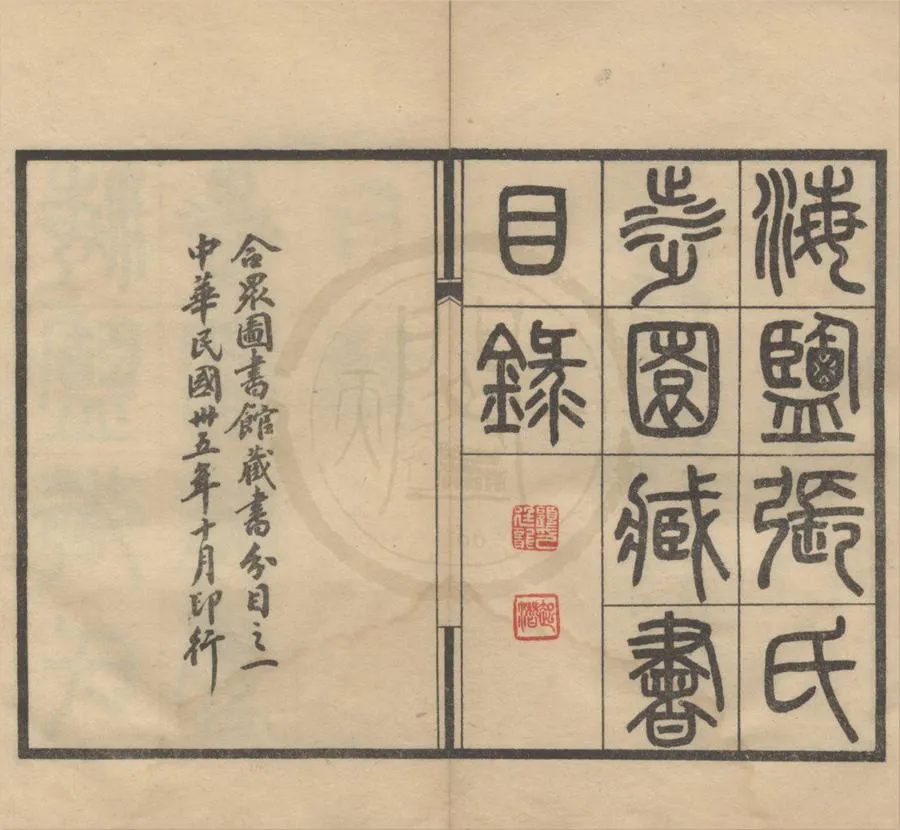 海鹽張氏
涉園藏書
目錄
顧印廷龍
起潛
合眾圖書館藏書分目之一
中華民國卅五年十月印行